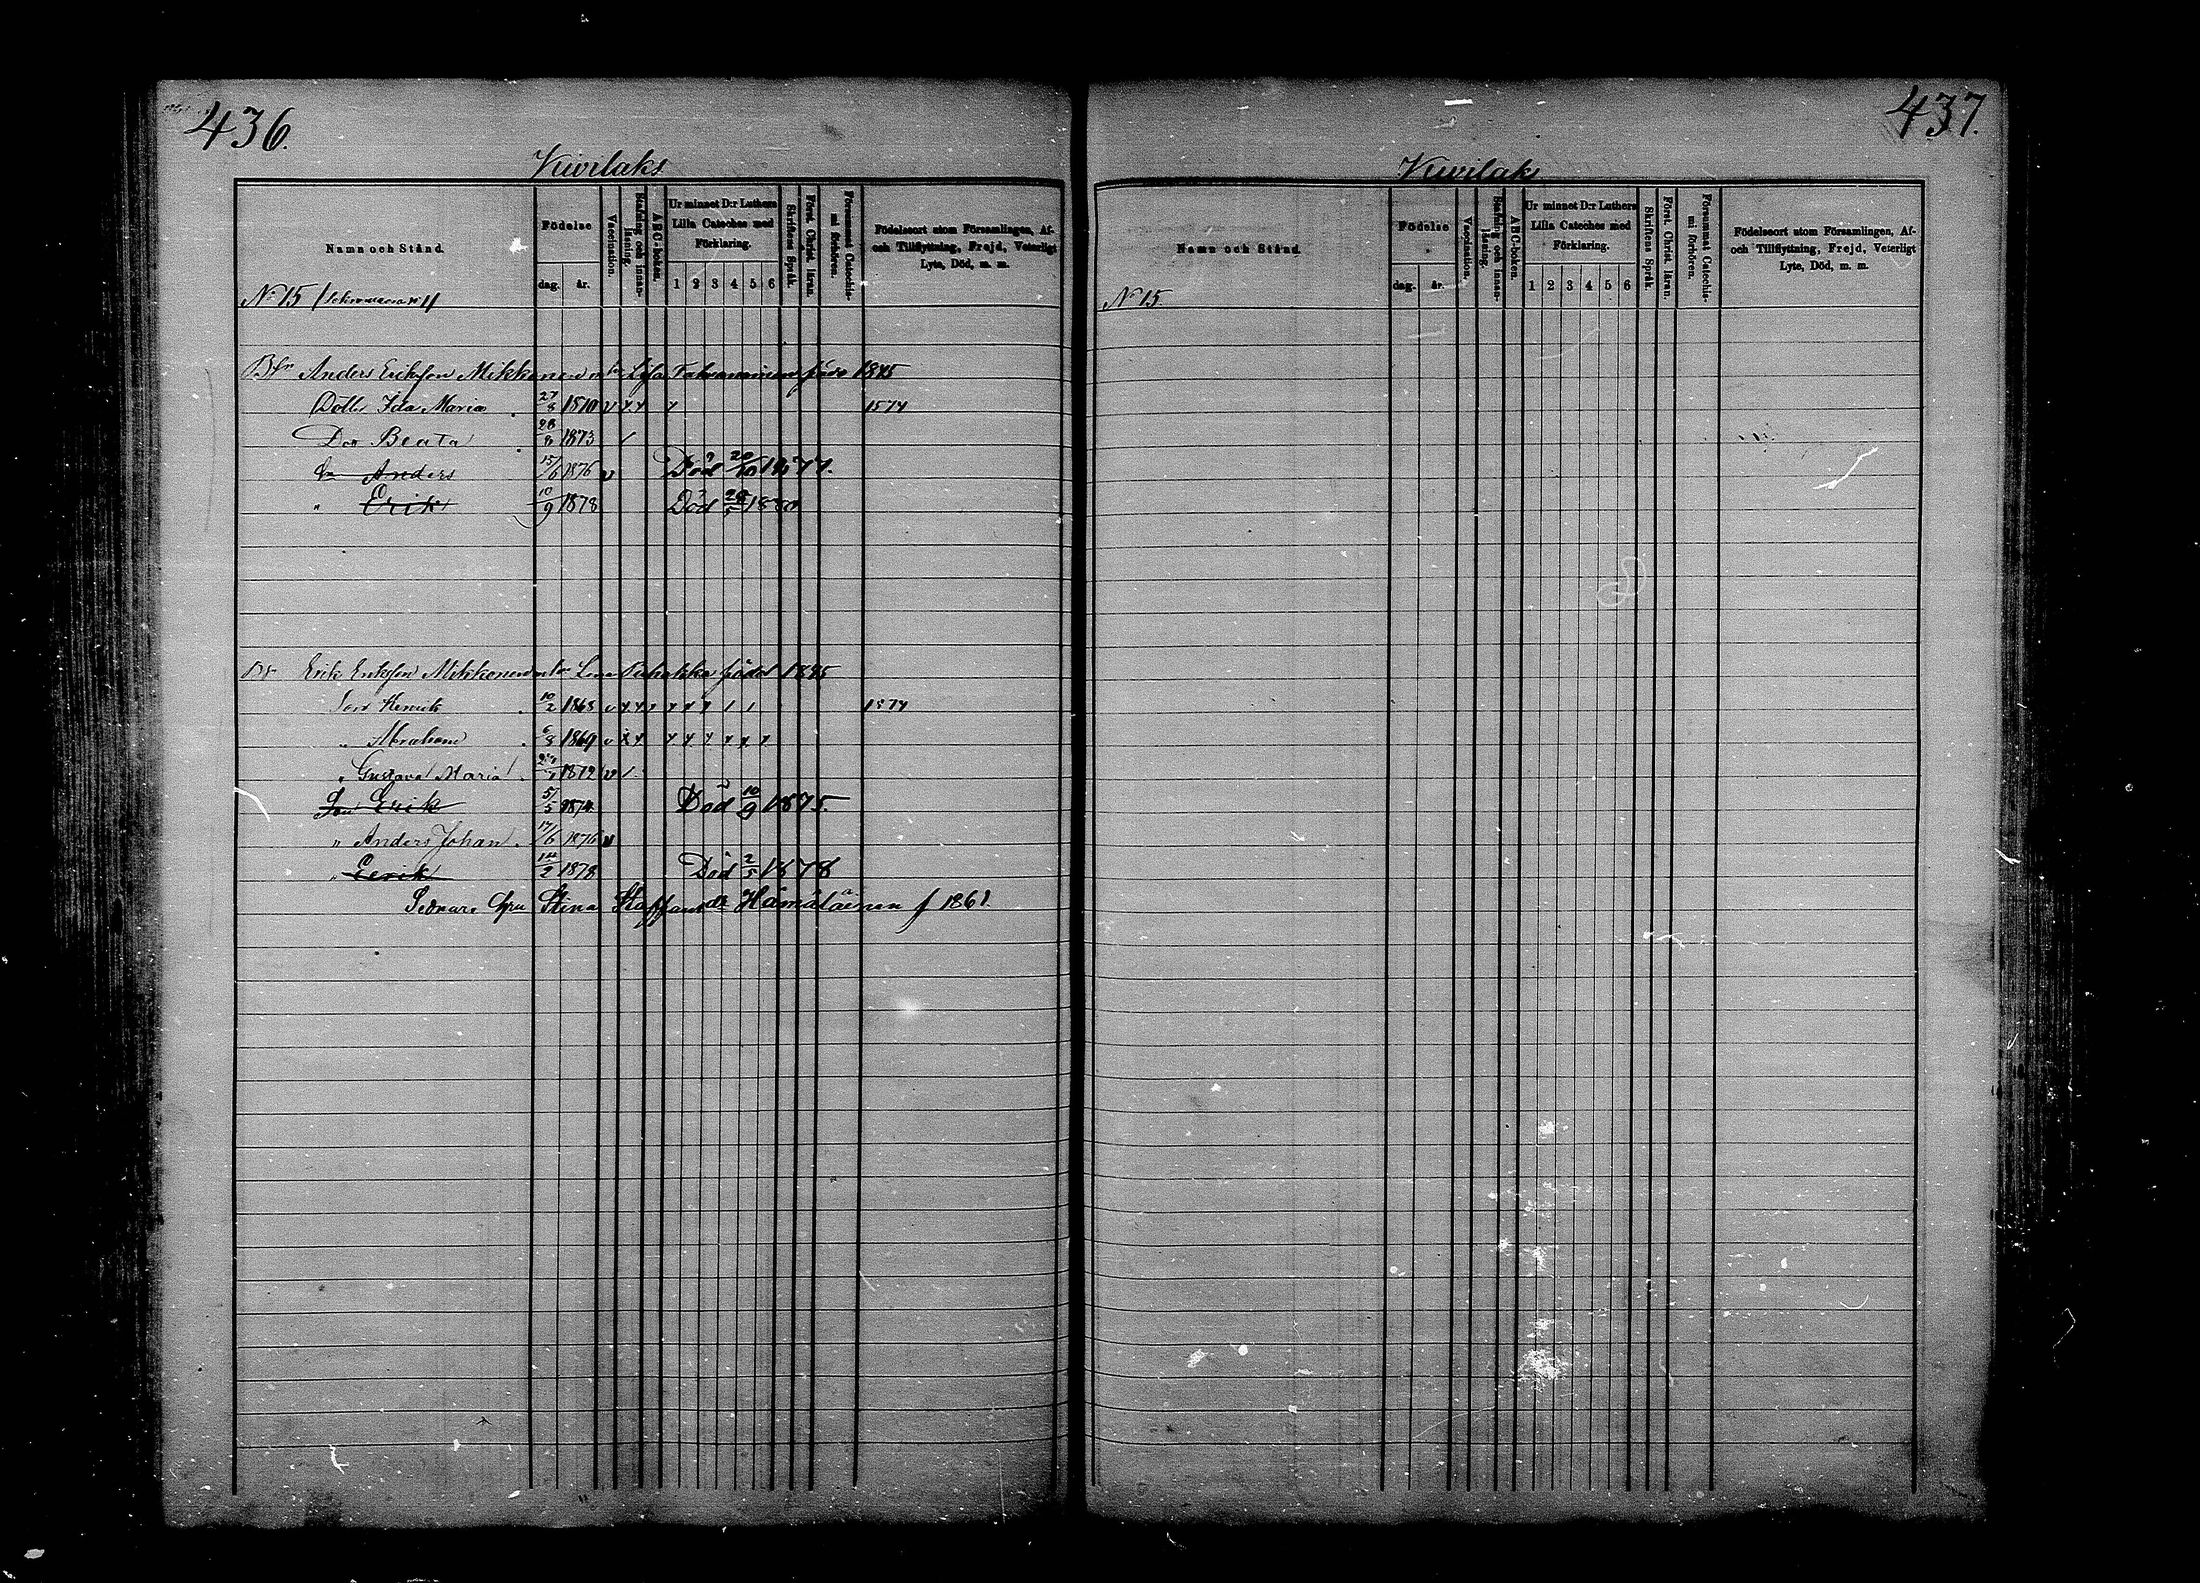 436.
Kivilaks
Namn och Stånd.
Födelse
dag. år.
Vaccination.
Bonfning och innanläsning.
ABC-boken.
Ur minnet D:r Luthers Lilla Cateches med Förklaring.
1 2 3 4 5 6
Skriftens Språk.
Först. Christ. läran.
Försummat Catechismi förhören.
Födelseort utom Församlingen, Af- och Tillflyttning, Frejd, Veterligt Lyte, Död, m. m.
N:o 15
Anders Eriksson Mikkonen m h Lisa född 1845
Dottr Ida Maria 27/8 1870 v x x x 1874
Dor Beata 28/8 1873 /
Anders 15/6 1876 v Död 20/10 1877.
" Erik 10/9 1878 Död
Erik Eriksson Mikkonen Lena född 1845
Son Henrik 10/2 1868 1874
" Abraham 6/8 1869 v x x x x x x x x
" Gustava Maria 1872 v /
Son Erik 5/5 1874 Död 10/9 1875.
" Anders Johan 17/6 1876 v
" Eerik 1878 Död 2/5 1878
Sednare Stina Staffansdr Hämäläinen f 1861.
437.
Kivilaks
Namn och Stånd.
Födelse
dag. år.
Vaccination.
Bonfning och innanläsning.
ABC-boken.
Ur minnet D:r Luthers Lilla Cateches med Förklaring.
1 2 3 4 5 6
Skriftens Språk.
Först. Christ. läran.
Försummat Catechismi förhören.
Födelseort utom Församlingen, Af- och Tillflyttning, Frejd, Veterligt Lyte, Död, m. m.
N:o 15.